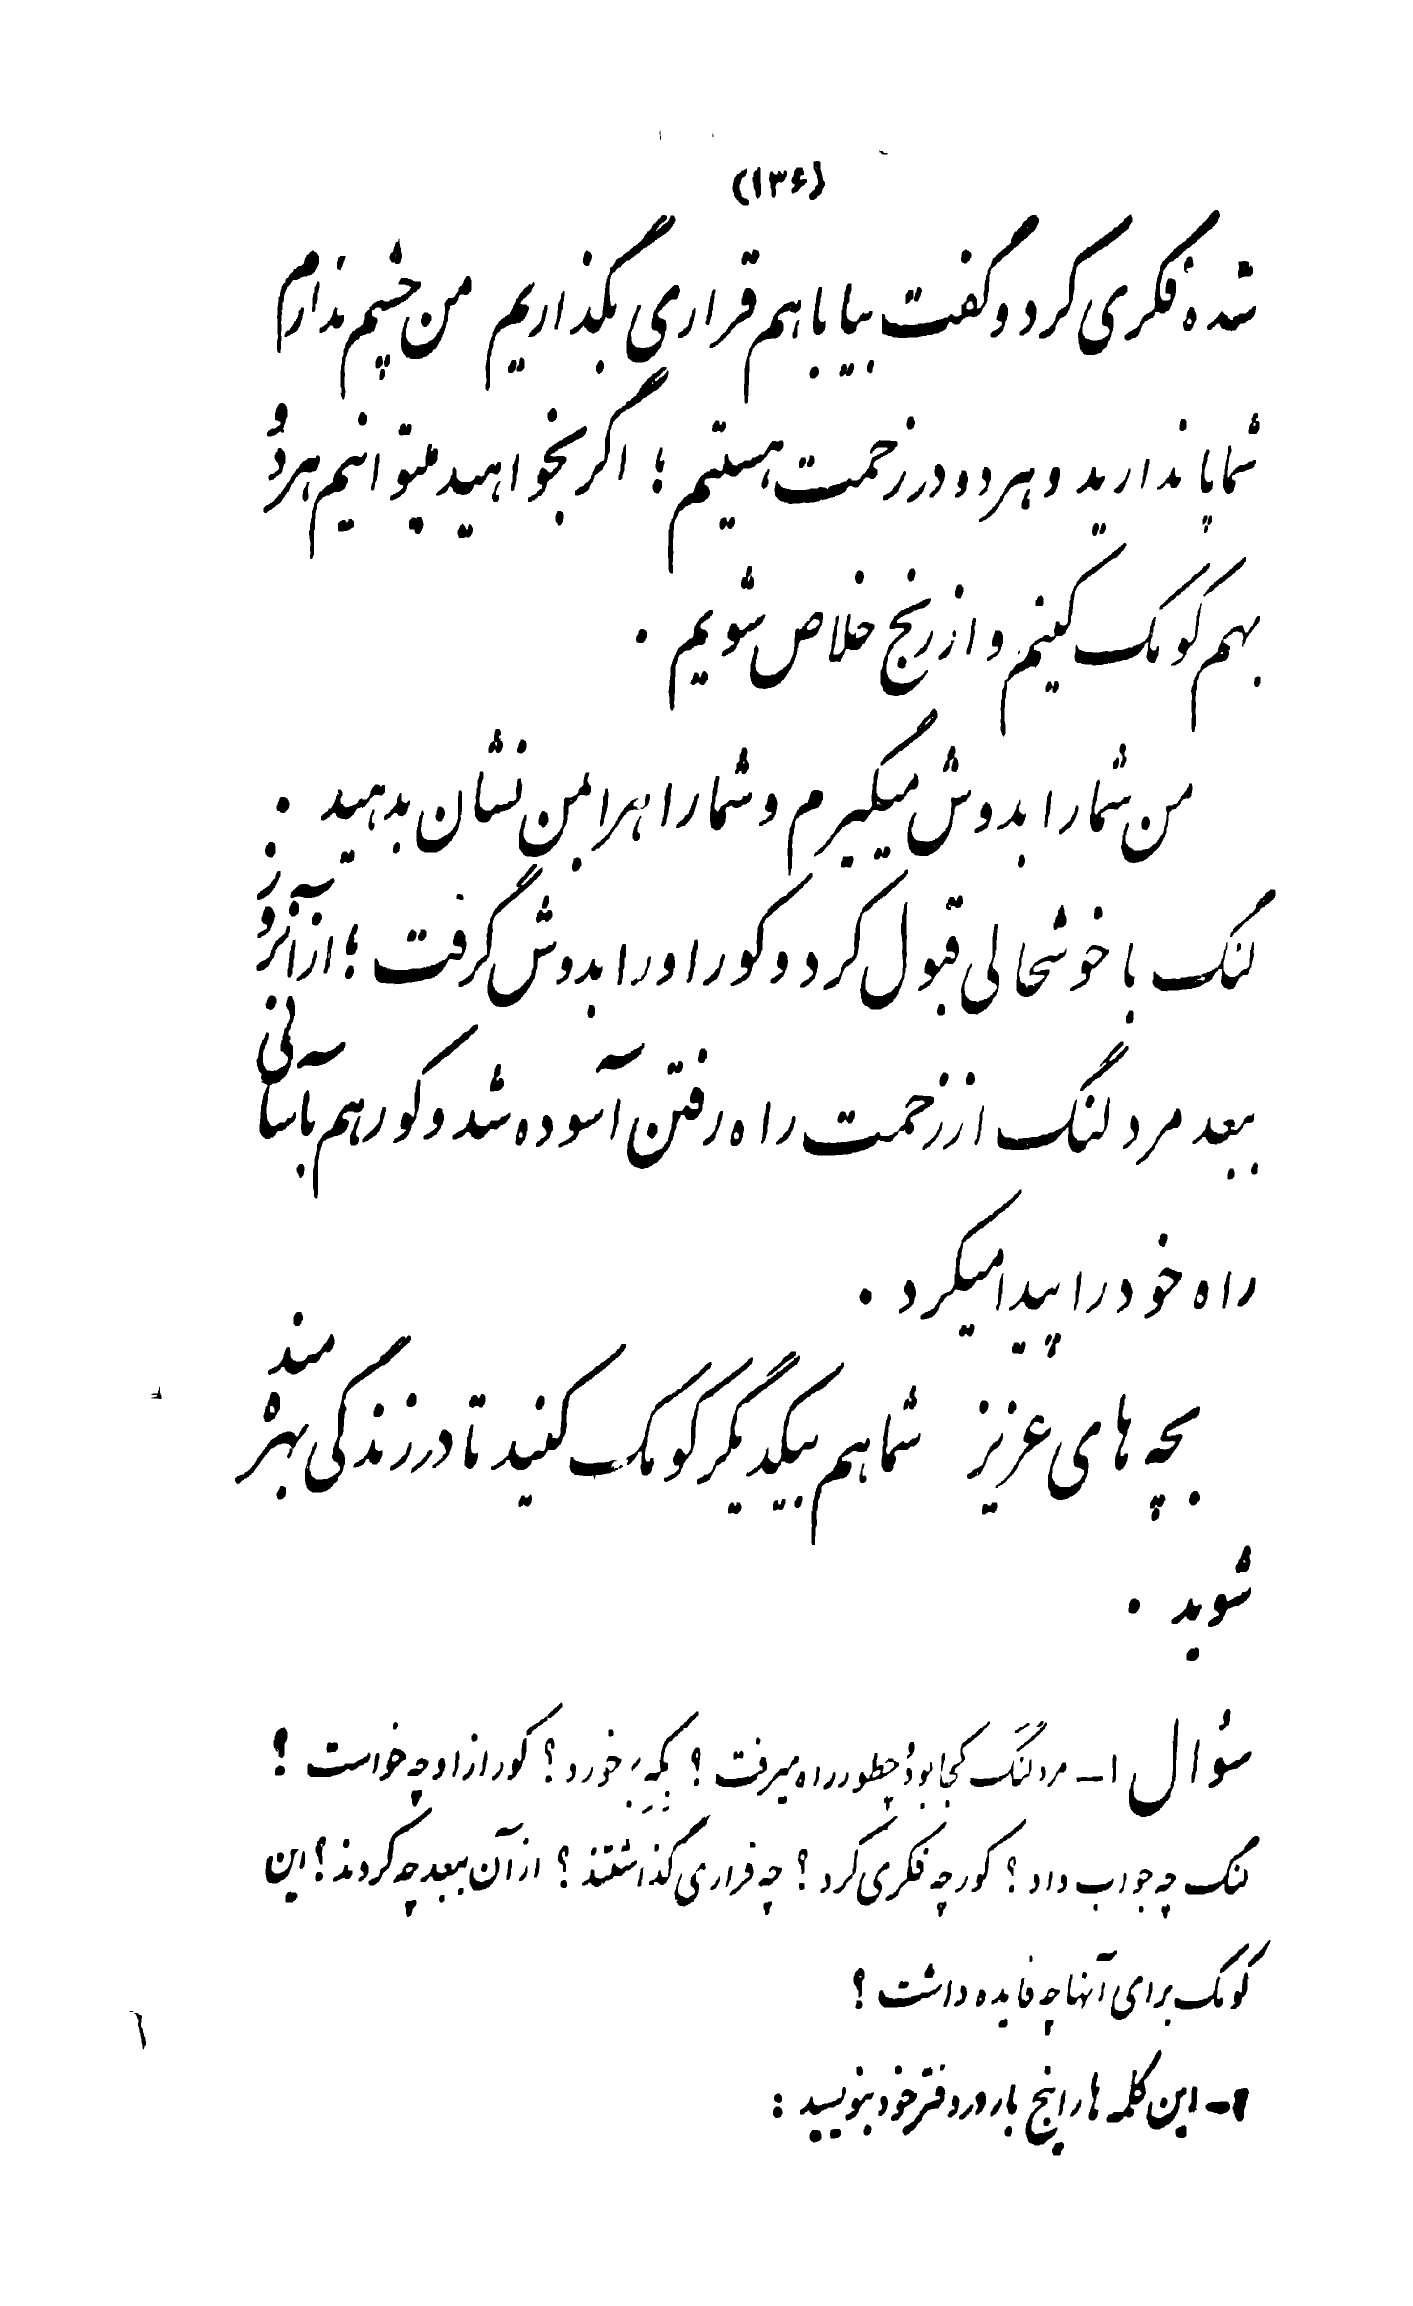 (۱۳۶)
شده فکری کرد و گفت بیا با هم قراری بگذاریم من چشم ندارم
شما پا ندارید و هر دو در زحمت هستیم ؛ اگر بخواهید میتوانیم هر دُو
بهم کومک کنیم و از رنج خلاص شویم .
من شما را بدوش میگیرم و شما راه را بمن نشان بدهید .
لنگ با خوشحالی قبول کرد و کور او را بدوش گرفت ؛ از آنروز
ببعد مرد لنگ از زحمت راه رفتن آسوده شد و کور هم بآسانی
راه خود را پیدا میکرد .
بچه های عزیز شما هم بیکدیگر کومک کنید تا در زندگی بهره مند
شوید .
سؤال ۱- مرد لنگ کجا بود؟ چطور راه میرفت ؟ بکه بر خورد ؟ کور از او چه خواست ؟
لنگ چه جواب داد ؟ کور چه فکری کرد ؟ چه قراری گذاشتند ؟ از آن ببعد چه کردند ؟ این
کومک برای آنها چه فایده داشت ؟
۲- این کلمه ها را پنج بار در دفتر خود بنویسید :